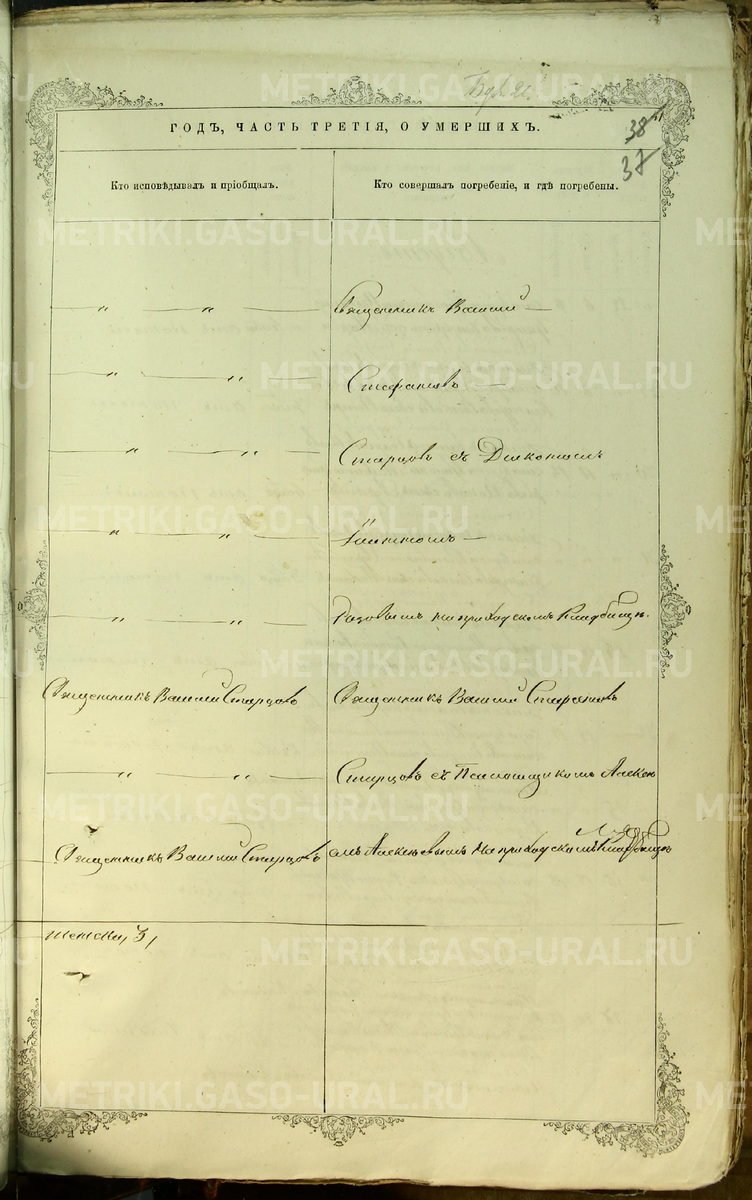 38
37
ГОДЪ, ЧАСТЬ ТРЕТІЯ, О УМЕРШИХЪ.
Кто исповѣдывалъ и пріобщалъ.
Кто совершалъ погребеніе, и гдѣ погребены.
— „ — „ — Священникъ Василій —
— „ — „ — Стефановъ —
— „ — „ — Старцовъ съ Діакономъ
— „ — „ —
— „ — „ — на приходскомъ кладбищѣ.
Священникъ Василій Старцовъ Священникъ Василій Стефановъ
— „ — „ — Старцовъ съ Псаломщикомъ Алексѣ
Священникъ Василій Старцовъ емъ на приходскомъ кладбищѣ
женска, 3,
METRIKI.GASO-URAL.RU